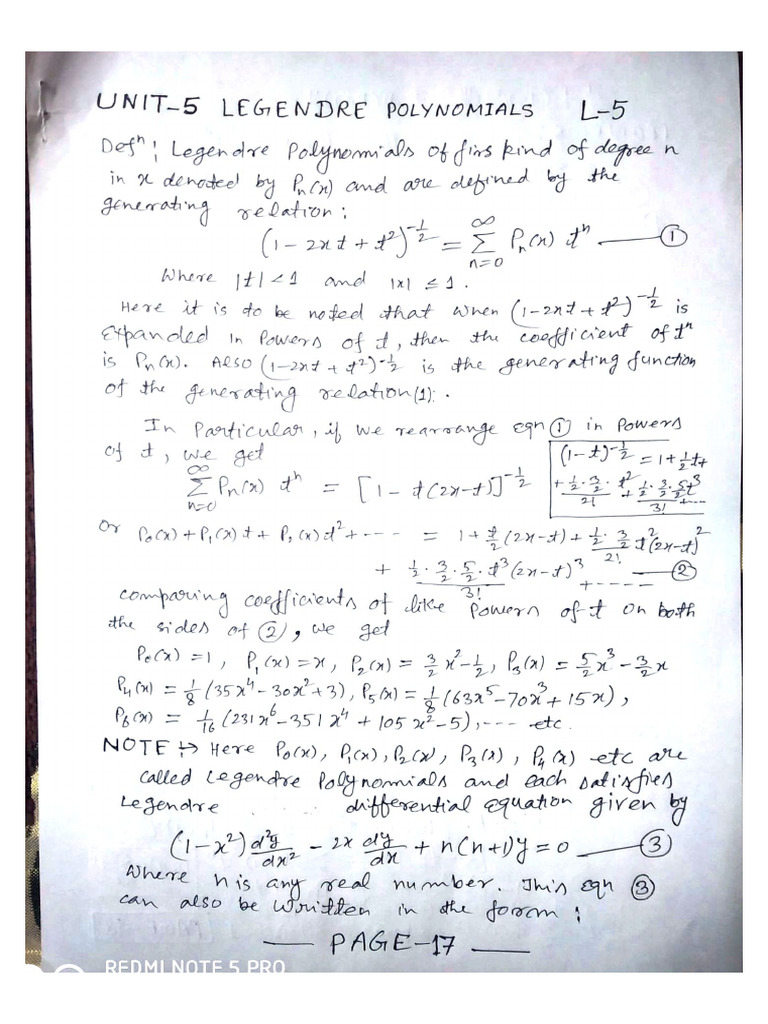 UNIT-5 LEGENDRE POLYNOMIALS L-5
Defⁿ: Legendre Polynomials of firs kind of degree n
in x denoted by Pₙ(x) and are defined by the
generating relation:
(1-2xt+t²)^{-1/2} = Σ_{n=0}^{∞} Pₙ(x) tⁿ —— ①
Where |t|<1 and |x| ≤ 1.
Here it is to be noted that when (1-2xt+t²)^{-1/2} is
expanded in Powers of t, then the coefficient of tⁿ
is Pₙ(x). Also (1-2xt+t²)^{-1/2} is the generating function
of the generating relation (1).
In Particular, if we rearrange eqn ① in Powers
of t, we get
Σ_{n=0}^{∞} Pₙ(x) tⁿ = [1-t(2x-t)]^{-1/2}
(1-t)^{-1/2} = 1+½t+
+ (½·3/2)/2! t² + (½·3/2·5/2)/3! t³ + ----
or P₀(x)+P₁(x)t+P₂(x)t²+---- = 1+t/2(2x-t)+(½·3/2)/2! t²(2x-t)²
+ (½·3/2·5/2)/3! ·t³(2x-t)³ + ----- —②
comparing coefficients of like Powers of t on both
the sides of ②, we get
P₀(x)=1, P₁(x)=x, P₂(x)=3/2x²-½, P₃(x)=5/2x³-3/2x
P₄(x)=1/8(35x⁴-30x²+3), P₅(x)=1/8(63x⁵-70x³+15x),
P₆(x) = 1/16(231x⁶-351x⁴+105x²-5),---- etc.
NOTE:→ Here P₀(x), P₁(x), P₂(x), P₃(x), P₄(x) etc are
called Legendre Polynomials and each satisfies
Legendre differential equation given by
(1-x²) d²y/dx² - 2x dy/dx + n(n+1)y = 0 —— ③
Where n is any real number. This Eqn ③
can also be written in the form:
—— PAGE-17 ——
REDMI NOTE 5 PRO